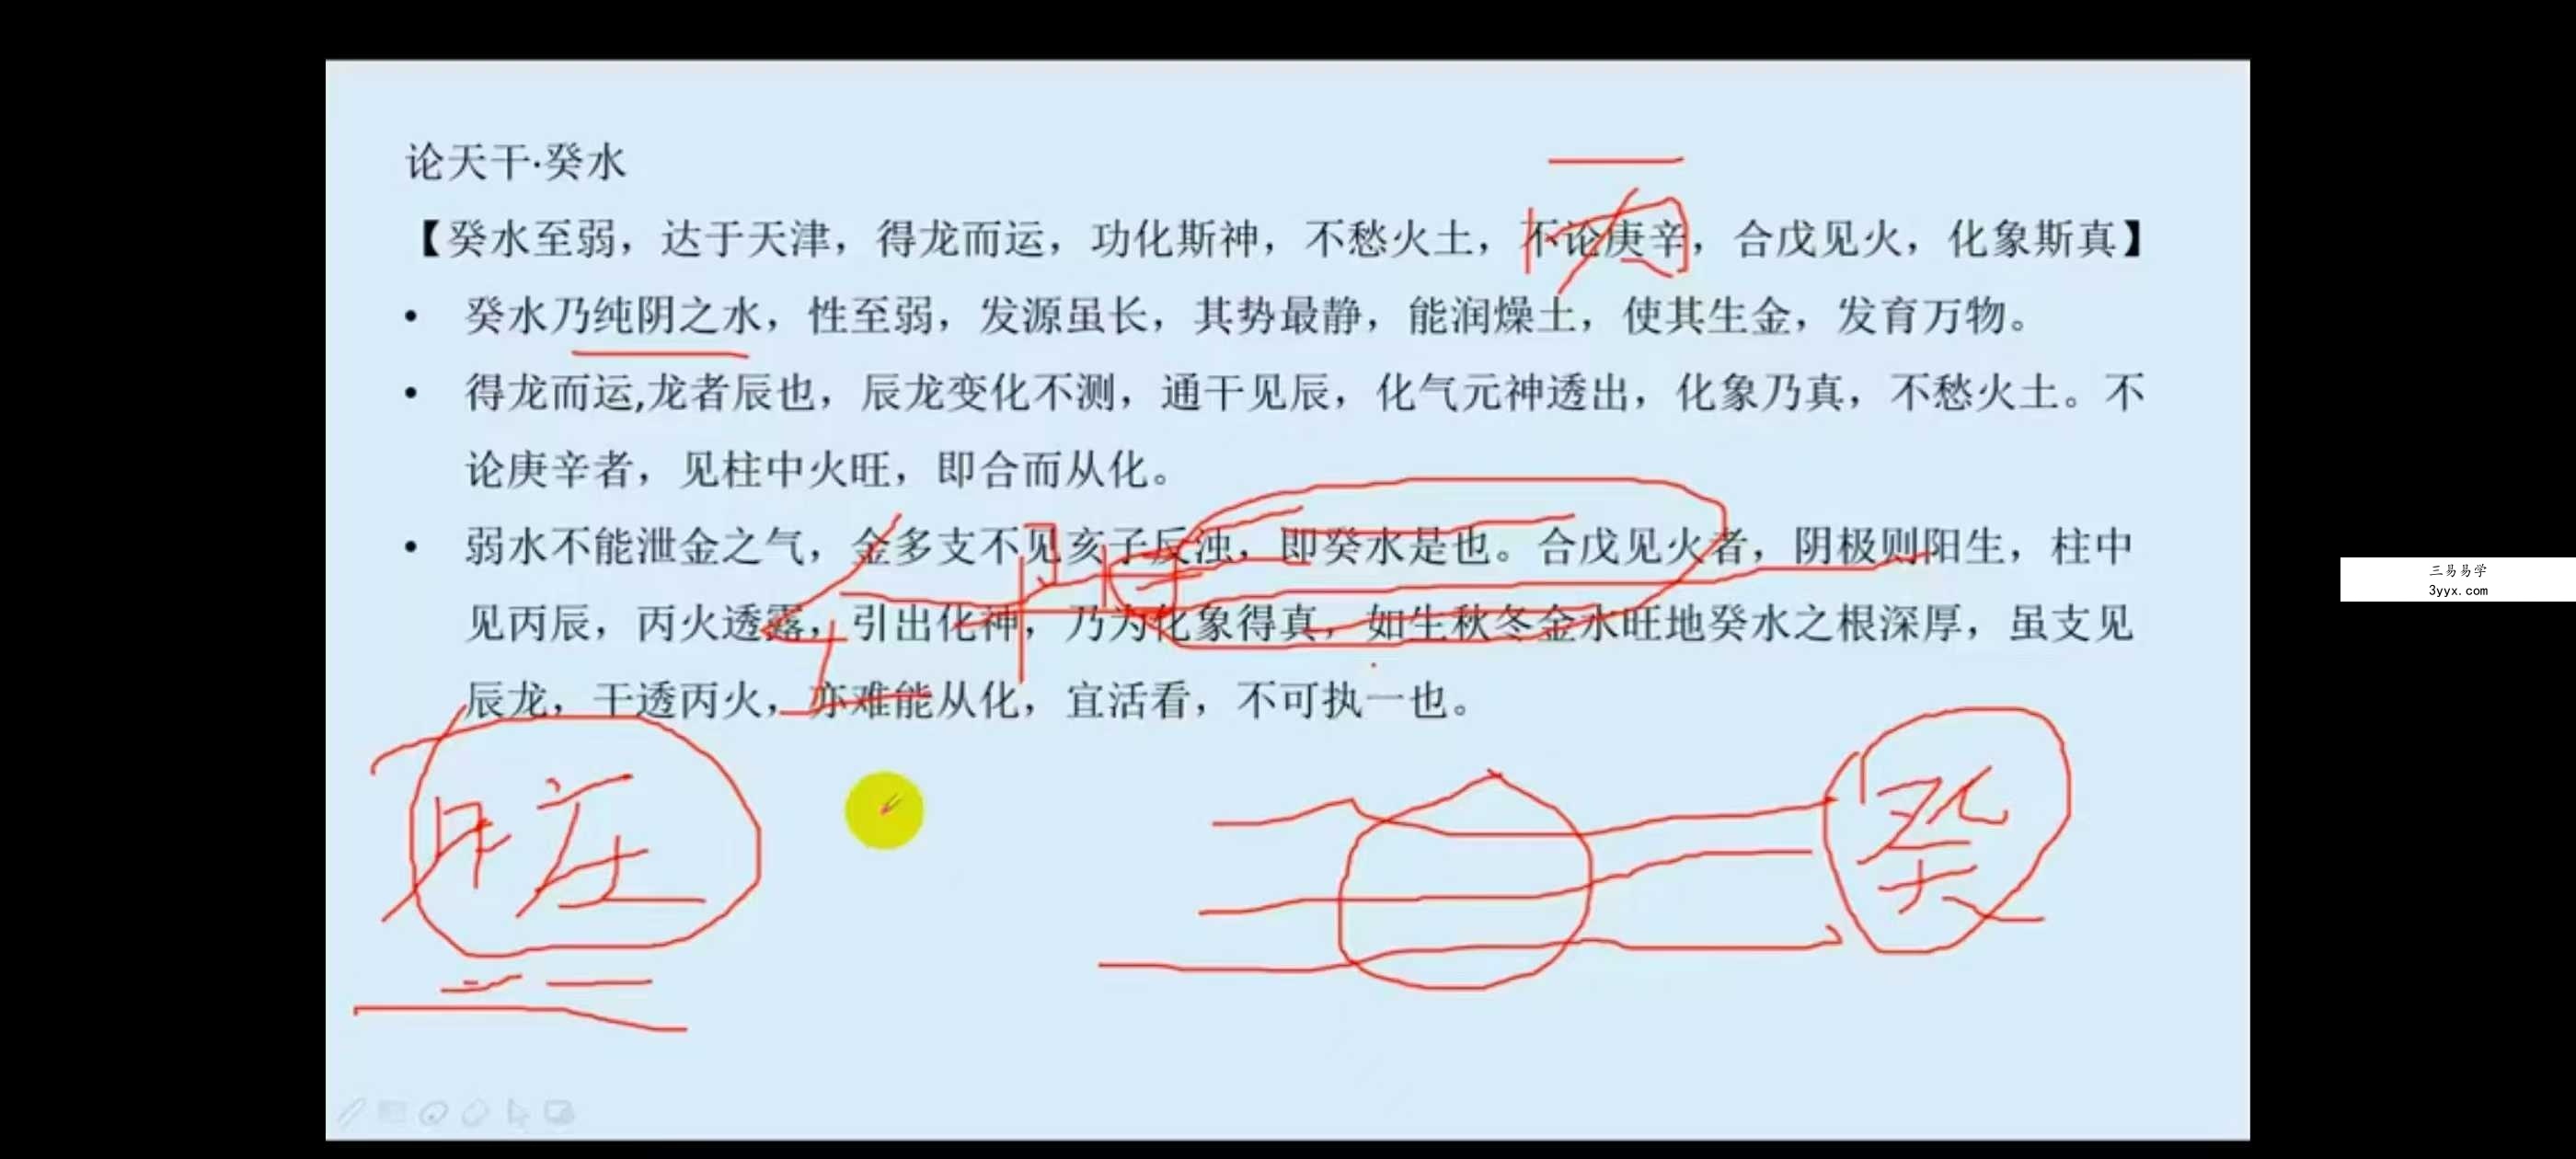 论天干·癸水
【癸水至弱，达于天津，得龙而运，功化斯神，不愁火土，不论庚辛，合戊见火，化象斯真】
• 癸水乃纯阴之水，性至弱，发源虽长，其势最静，能润燥土，使其生金，发育万物。
• 得龙而运,龙者辰也，辰龙变化不测，通干见辰，化气元神透出，化象乃真，不愁火土。不
论庚辛者，见柱中火旺，即合而从化。
• 弱水不能泄金之气，金多支不见亥子反浊，即癸水是也。合戊见火者，阴极则阳生，柱中
见丙辰，丙火透露，引出化神，乃为化象得真，如生秋冬金水旺地癸水之根深厚，虽支见
辰龙，干透丙火，亦难能从化，宜活看，不可执一也。
癸
三易易学
3yyx.com